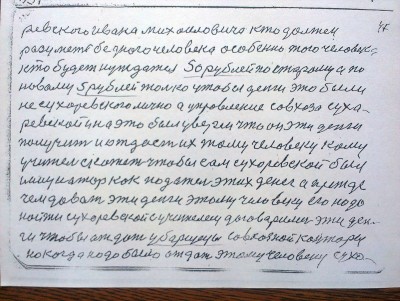 47
ревского ивана михайловича кто должен
разуметь бедного человека особенно того человек-
кто будет нуждатся 50 рублей по старому а по
новому 5 рублей только чтобы денги это были
не сухоревского лично а управление совхоза суха-
ревской и на это был уверен что он эти денги
получит и отдаст их тому человеку кому
учител скажет чтобы сам сухоревской был
инициатор как податель этих денег а прежде
чем давать эти денги этому человеку его надо
найти сухоревской с учителем договарились эти ден-
ги чтобы отдать уборщицы совхозной конторы
но когда надо было отдать этому человеку сухо-